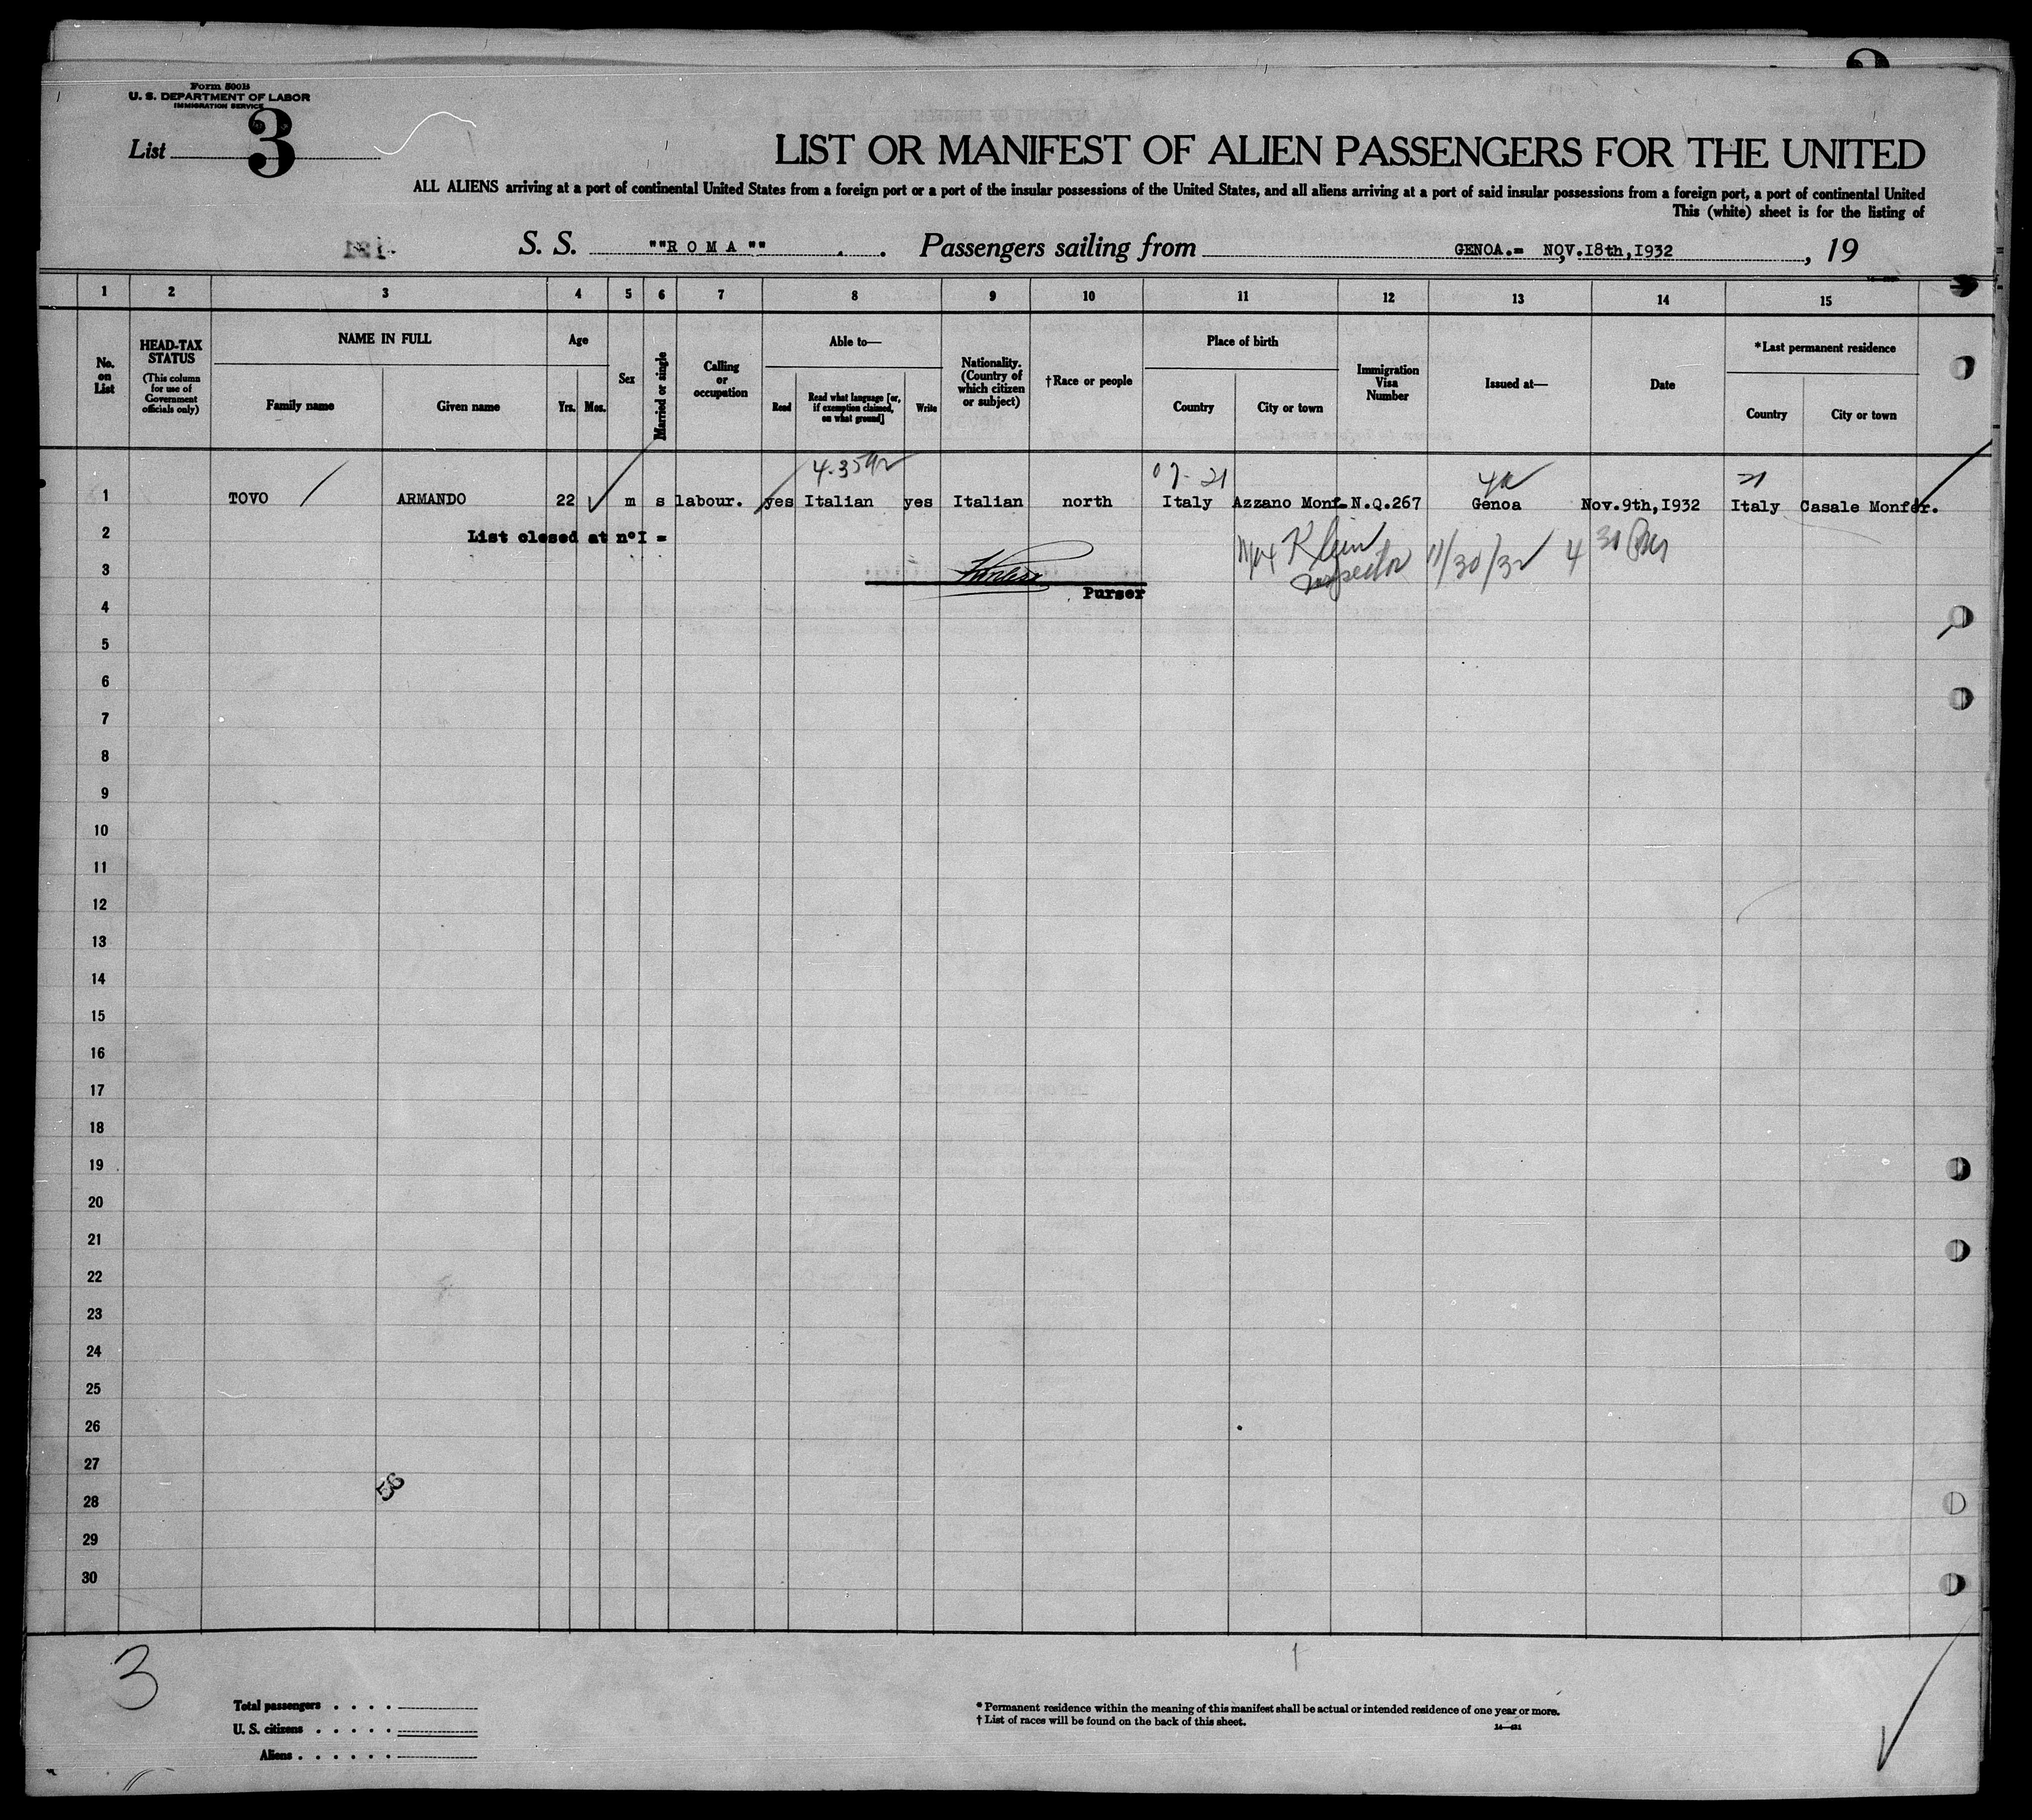 Form 500B
U. S. DEPARTMENT OF LABOR
IMMIGRATION SERVICE
List 3
LIST OR MANIFEST OF ALIEN PASSENGERS FOR THE UNITED
ALL ALIENS arriving at a port of continental United States from a foreign port or a port of the insular possessions of the United States, and all aliens arriving at a port of said insular possessions from a foreign port, a port of continental United
This (white) sheet is for the listing of
S. S. ""R O M A "" Passengers sailing from GENOA.= NOV.18th,1932, 19
1 2 3 4 5 6 7 8 9 10 11 12 13 14 15
No. on List
HEAD-TAX STATUS
(This column for use of Government officials only)
NAME IN FULL
Family name
Given name
Age
Yrs.
Mos.
Sex
Married or single
Calling or occupation
Able to—
Read
Read what language [or, if exemption claimed, on what ground]
Write
Nationality. (Country of which citizen or subject)
†Race or people
Place of birth
Country
City or town
Immigration Visa Number
Issued at—
Date
*Last permanent residence
Country
City or town
1 TOVO ARMANDO 22 m s labour. yes Italian yes Italian north Italy Azzano Monf. N.Q.267 Genoa Nov.9th,1932 Italy Casale Monfer.
2 List closed at n°I =
Klein
Inspector 11/30/32
3
Purser
4
5
6
7
8
9
10
11
12
13
14
15
16
17
18
19
20
21
22
23
24
25
26
27
28
29
30
3
Total passengers . . . .
U. S. citizens . . . . .
Aliens . . . . . .
* Permanent residence within the meaning of this manifest shall be actual or intended residence of one year or more.
† List of races will be found on the back of this sheet.